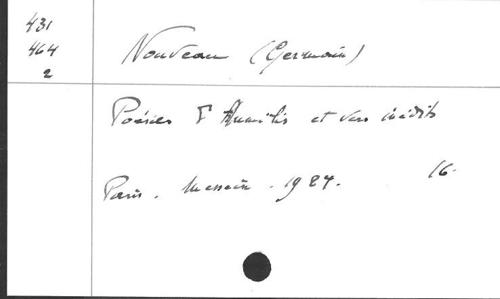 431
464
2
Nouveau (Germain)
Poésies d'Humilis et vers inédits
Paris. Messein. 1924. 16.